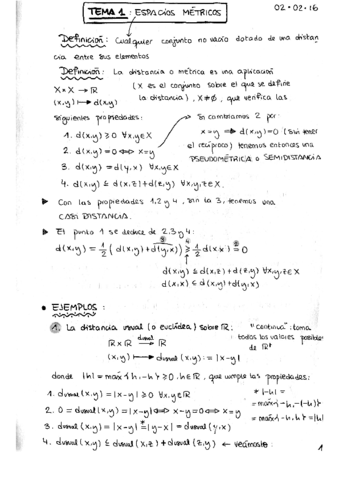 TEMA 1: ESPACIOS MÉTRICOS
02·02·16
Definición: Cualquier conjunto no vacío dotado de una distan
cia entre sus elementos.
Definición: La distancia o métrica es una aplicación
X × X → ℝ (X es el conjunto sobre el que se define
(x,y) ↦ d(x,y) la distancia), X≠∅, que verifica las
siguientes propiedades:
1. d(x,y) ≥ 0 ∀x,y∈X
2. d(x,y) = 0 ⟺ x=y
3. d(x,y) = d(y,x) ∀x,y∈X
4. d(x,y) ≤ d(x,z)+d(z,y) ∀x,y,z∈X.
Si cambiamos 2 por:
x=y ⟹ d(x,y)=0 (sin tener
el recíproco) tenemos entonces una
PSEUDOMÉTRICA o SEMIDISTANCIA
▶ Con las propiedades 1,2 y 4, sin la 3, tenemos una
CASI DISTANCIA.
▶ El punto 1 se deduce de 2,3 y 4:
d(x,y) = 1/2 (d(x,y)+d(y,x)) ≥ 1/2 d(x,x) = 0
d(x,y) ≤ d(x,z)+d(z,y) ∀x,y,z∈X
d(x,x) ≤ d(x,y)+d(y,x)
• EJEMPLOS:
1. La distancia usual (o euclídea) sobre ℝ:
"continua": toma
todos los valores posibles
de ℝ
ℝ × ℝ →dusual ℝ
(x,y) ↦ dusual(x,y) := |x-y|
donde |h| = máx{h,-h} ≥ 0, h∈ℝ, que cumple las propiedades:
1. dusual(x,y) = |x-y| ≥ 0 ∀x,y∈ℝ
2. 0 = dusual(x,y) = |x-y| ⟺ x-y=0 ⟺ x=y
3. dusual(x,y) = |x-y| *= |y-x| = dusual(y,x)
4. dusual(x,y) ≤ dusual(x,z) + dusual(z,y) ← veámoslo:
* |-h| =
= máx{-h,-(-h)}
= máx{-h,h} = |h|
1